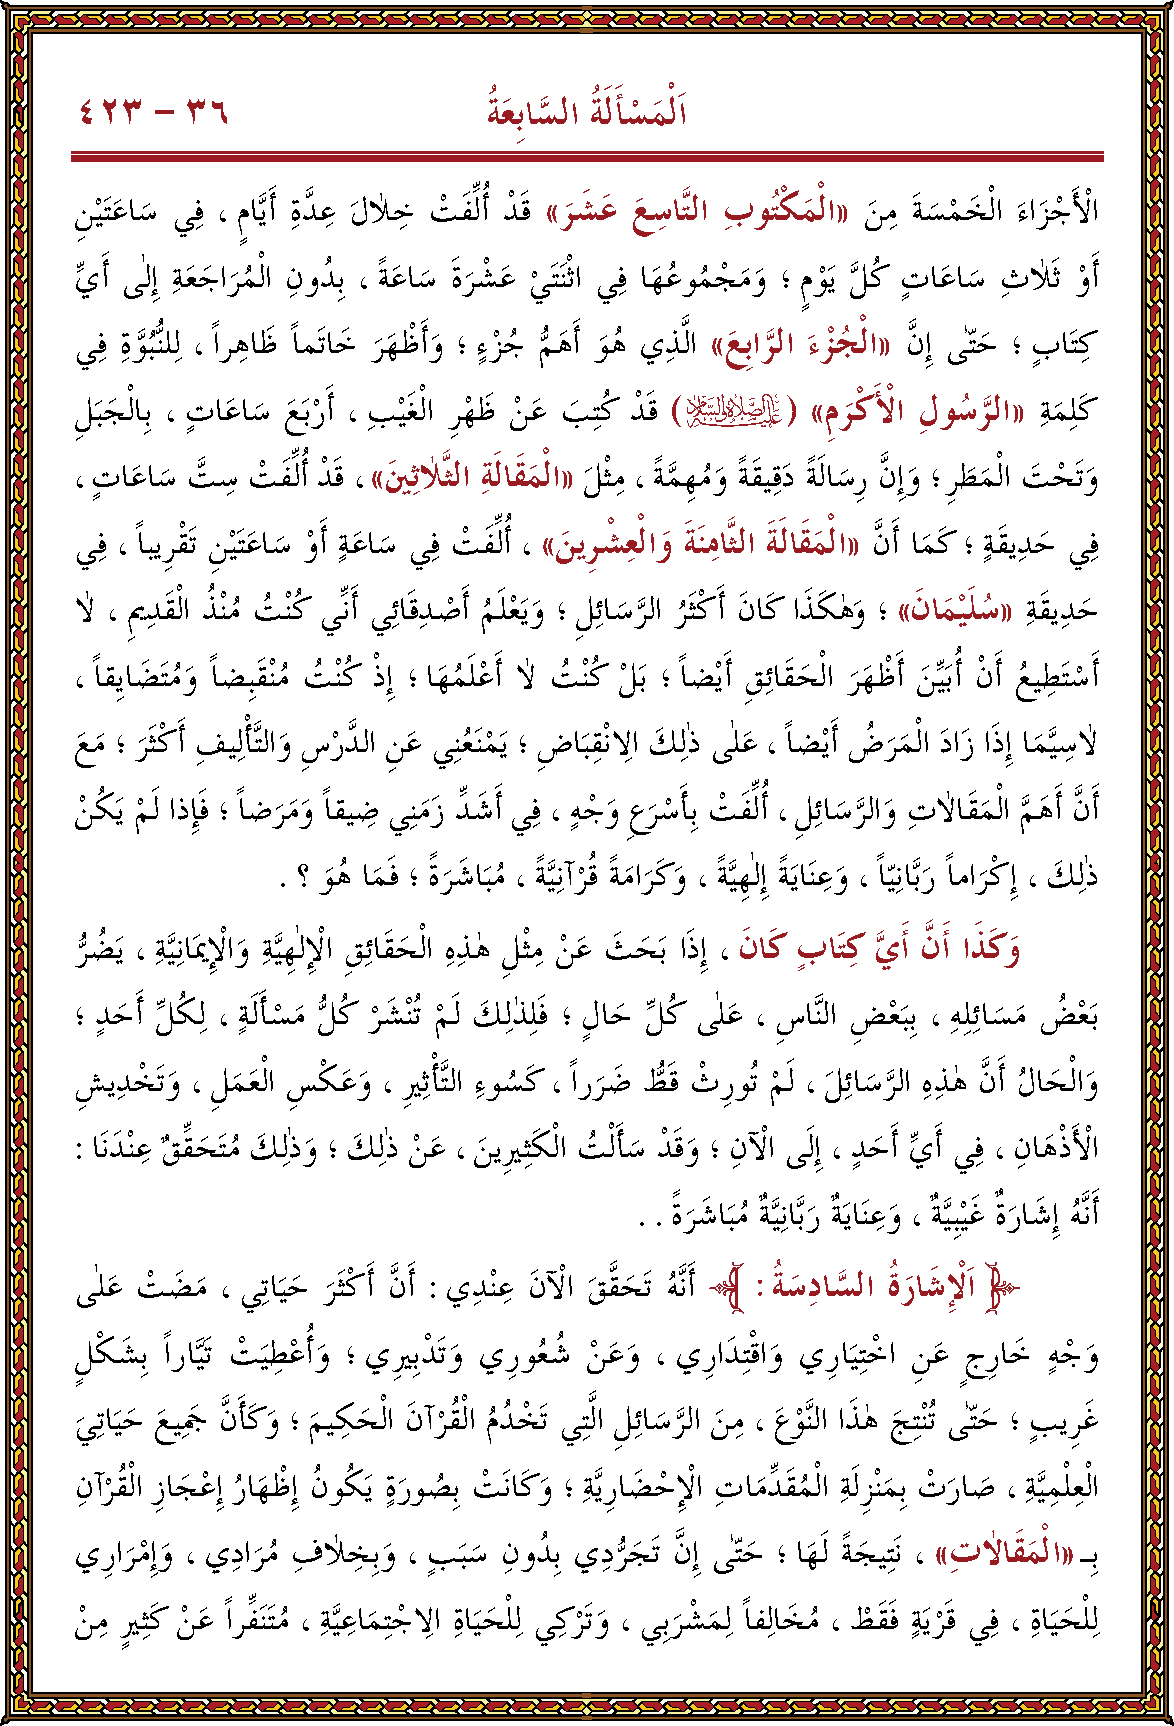 اَلْمَسْأَلَةُ السَّابِعَةُ ٣٦ – ٤٢٣
الْأَجْزَاءَ الْخَمْسَةَ مِنَ «الْمَكْتُوبِ التَّاسِعَ عَشَرَ» قَدْ أُلِّفَتْ خِلَالَ عِدَّةِ أَيَّامٍ ، فِي سَاعَتَيْنِ
أَوْ ثَلَاثِ سَاعَاتٍ كُلَّ يَوْمٍ ؛ وَمَجْمُوعُهَا فِي اثْنَتَيْ عَشْرَةَ سَاعَةً ، بِدُونِ الْمُرَاجَعَةِ إِلٰى أَيِّ
كِتَابٍ ؛ حَتّٰى إِنَّ «الْجُزْءَ الرَّابِعَ» الَّذِي هُوَ أَهَمُّ جُزْءٍ ؛ وَأَظْهَرَ خَاتَماً ظَاهِراً ، لِلنُّبُوَّةِ فِي
كَلِمَةِ «الرَّسُولِ الْأَكْرَمِ» (عَلَيْهِ الصَّلَاةُ وَالسَّلَامُ) قَدْ كُتِبَ عَنْ ظَهْرِ الْغَيْبِ ، أَرْبَعَ سَاعَاتٍ ، بِالْجَبَلِ
وَتَحْتَ الْمَطَرِ ؛ وَإِنَّ رِسَالَةً دَقِيقَةً وَمُهِمَّةً ، مِثْلَ «الْمَقَالَةِ الثَّلَاثِينَ» ، قَدْ أُلِّفَتْ سِتَّ سَاعَاتٍ ،
فِي حَدِيقَةٍ ؛ كَمَا أَنَّ «الْمَقَالَةَ الثَّامِنَةَ وَالْعِشْرِينَ» ، أُلِّفَتْ فِي سَاعَةٍ أَوْ سَاعَتَيْنِ تَقْرِيباً ، فِي
حَدِيقَةِ «سُلَيْمَانَ» ؛ وَهٰكَذَا كَانَ أَكْثَرُ الرَّسَائِلِ ؛ وَيَعْلَمُ أَصْدِقَائِي أَنِّي كُنْتُ مُنْذُ الْقَدِيمِ ، لَا
أَسْتَطِيعُ أَنْ أُبَيِّنَ أَظْهَرَ الْحَقَائِقِ أَيْضاً ؛ بَلْ كُنْتُ لَا أَعْلَمُهَا ؛ إِذْ كُنْتُ مُنْقَبِضاً وَمُتَضَايِقاً ،
لَاسِيَّمَا إِذَا زَادَ الْمَرَضُ أَيْضاً ، عَلٰى ذٰلِكَ الِانْقِبَاضِ ؛ يَمْنَعُنِي عَنِ الدَّرْسِ وَالتَّأْلِيفِ أَكْثَرَ ؛ مَعَ
أَنَّ أَهَمَّ الْمَقَالَاتِ وَالرَّسَائِلِ ، أُلِّفَتْ بِأَسْرَعِ وَجْهٍ ، فِي أَشَدِّ زَمَنِي ضِيقاً وَمَرَضاً ؛ فَإِذا لَمْ يَكُنْ
ذٰلِكَ ، إِكْرَاماً رَبَّانِيّاً ، وَعِنَايَةً إِلٰهِيَّةً ، وَكَرَامَةً قُرْآنِيَّةً ، مُبَاشَرَةً ؛ فَمَا هُوَ ؟ .
وَكَذَا أَنَّ أَيَّ كِتَابٍ كَانَ ، إِذَا بَحَثَ عَنْ مِثْلِ هٰذِهِ الْحَقَائِقِ الْإِلٰهِيَّةِ وَالْإِيمَانِيَّةِ ، يَضُرُّ
بَعْضُ مَسَائِلِهِ ، بِبَعْضِ النَّاسِ ، عَلٰى كُلِّ حَالٍ ؛ فَلِذٰلِكَ لَمْ تُنْشَرْ كُلُّ مَسْأَلَةٍ ، لِكُلِّ أَحَدٍ ؛
وَالْحَالُ أَنَّ هٰذِهِ الرَّسَائِلَ ، لَمْ تُورِثْ قَطُّ ضَرَراً ، كَسُوءِ التَّأْثِيرِ ، وَعَكْسِ الْعَمَلِ ، وَتَخْدِيشِ
الْأَذْهَانِ ، فِي أَيِّ أَحَدٍ ، إِلَى الْآنِ ؛ وَقَدْ سَأَلْتُ الْكَثِيرِينَ ، عَنْ ذٰلِكَ ؛ وَذٰلِكَ مُتَحَقِّقٌ عِنْدَنَا :
أَنَّهُ إِشَارَةٌ غَيْبِيَّةٌ ، وَعِنَايَةٌ رَبَّانِيَّةٌ مُبَاشَرَةً . .
﴿ اَلْإِشَارَةُ السَّادِسَةُ : ﴾ أَنَّهُ تَحَقَّقَ الْآنَ عِنْدِي : أَنَّ أَكْثَرَ حَيَاتِي ، مَضَتْ عَلٰى
وَجْهٍ خَارِجٍ عَنِ اخْتِيَارِي وَاقْتِدَارِي ، وَعَنْ شُعُورِي وَتَدْبِيرِي ؛ وَأُعْطِيَتْ تَيَّاراً بِشَكْلٍ
غَرِيبٍ ؛ حَتّٰى تُنْتِجَ هٰذَا النَّوْعَ ، مِنَ الرَّسَائِلِ الَّتِي تَخْدُمُ الْقُرْآنَ الْحَكِيمَ ؛ وَكَأَنَّ جَمِيعَ حَيَاتِيَ
الْعِلْمِيَّةِ ، صَارَتْ بِمَنْزِلَةِ الْمُقَدِّمَاتِ الْإِحْضَارِيَّةِ ؛ وَكَانَتْ بِصُورَةٍ يَكُونُ إِظْهَارُ إِعْجَازِ الْقُرْآنِ
بِـ «الْمَقَالَاتِ» ، نَتِيجَةً لَهَا ؛ حَتّٰى إِنَّ تَجَرُّدِي بِدُونِ سَبَبٍ ، وَبِخِلَافِ مُرَادِي ، وَإِمْرَارِي
لِلْحَيَاةِ ، فِي قَرْيَةٍ فَقَطْ ، مُخَالِفاً لِمَشْرَبِي ، وَتَرْكِي لِلْحَيَاةِ الِاجْتِمَاعِيَّةِ ، مُتَنَفِّراً عَنْ كَثِيرٍ مِنْ